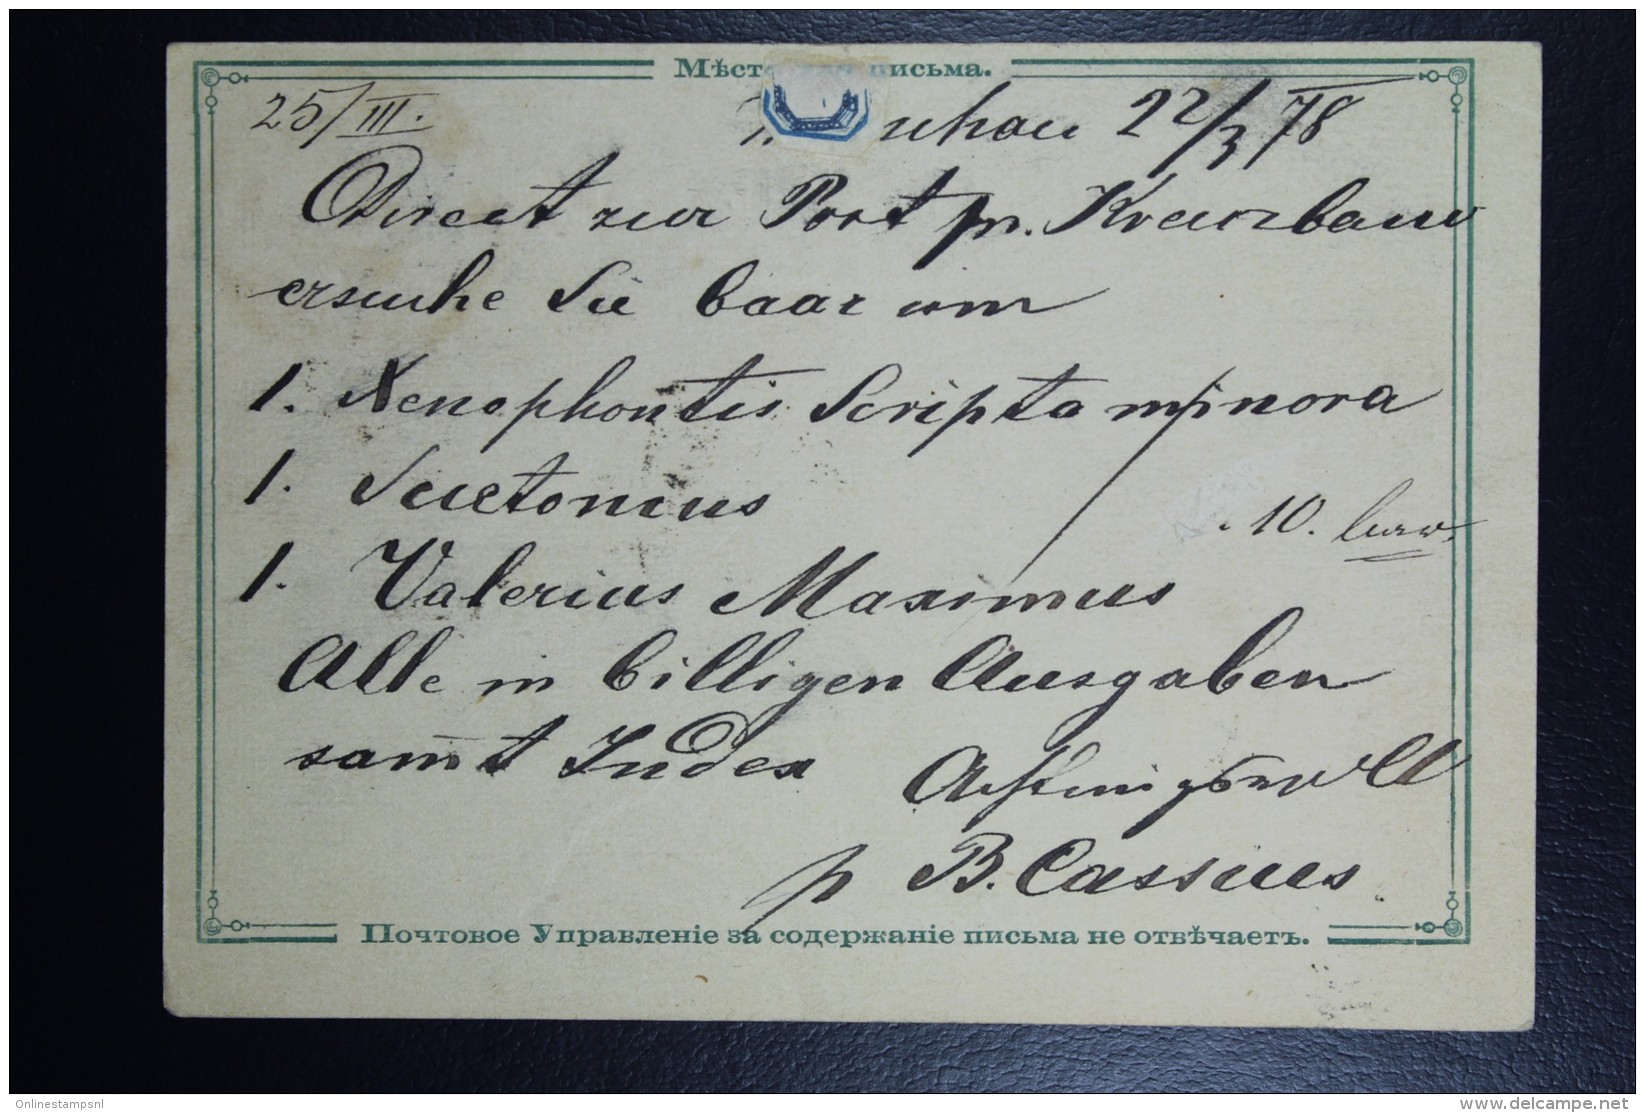 Мѣст письма.
25/III. 22/3 78
Direct zur Post pr. Kreuzband
ersuche Sie baar um
1. Xenophontis Scripta minora
1. Suetonius
1. Valerius Maximus
10.
Alle in billigen Ausgaben
samt Index
Achtungsvoll
p B. Cassius.
Почтовое Управленіе за содержаніе письма не отвѣчаетъ.
Onlinestampsnl
www.delcampe.net